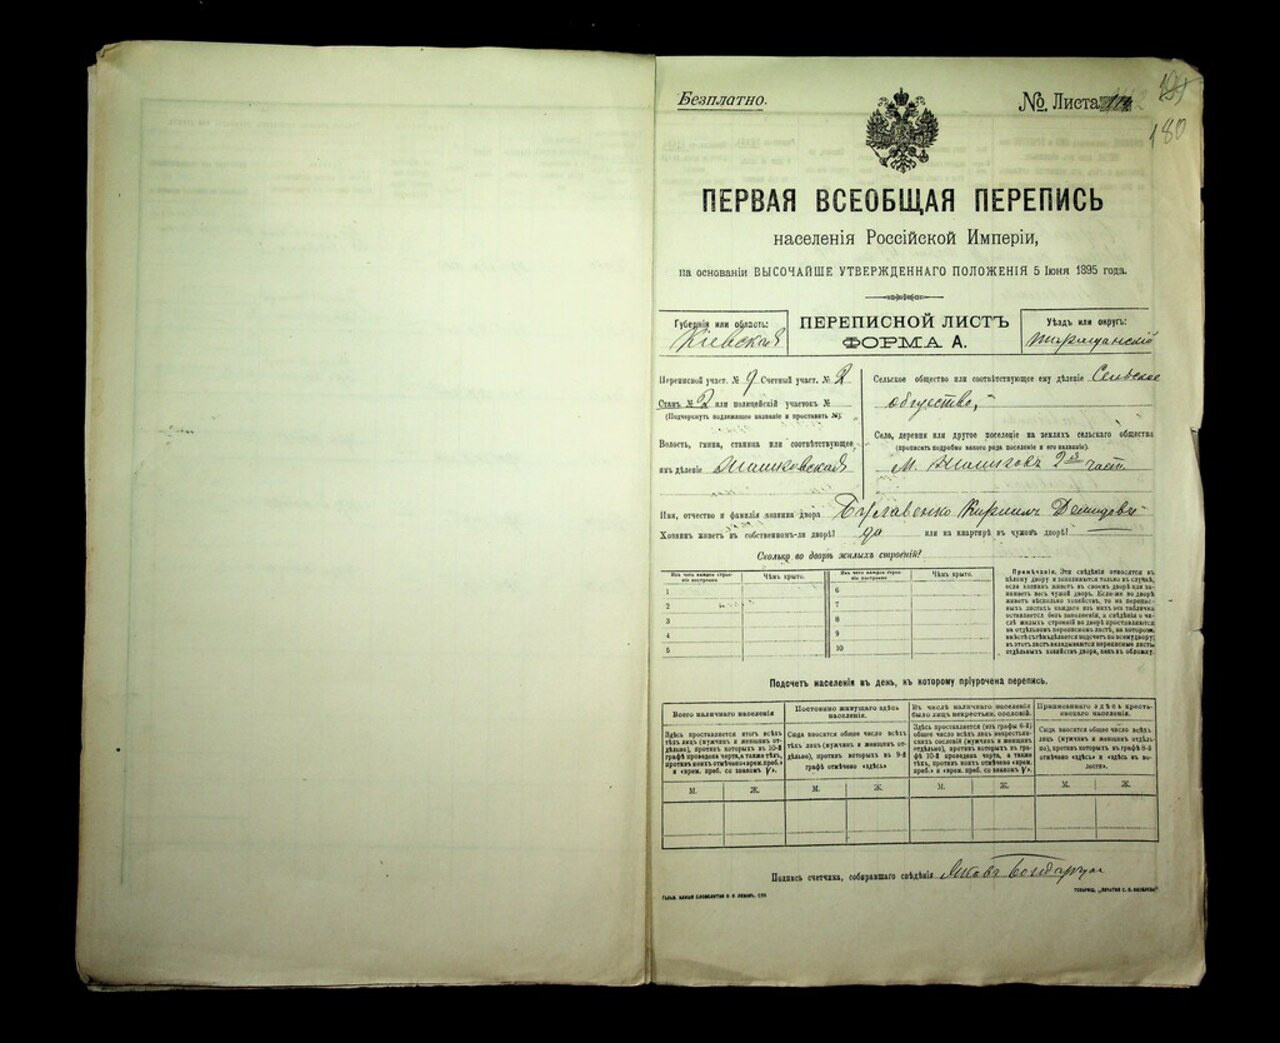 Безплатно.
№. Листа
180
ПЕРВАЯ ВСЕОБЩАЯ ПЕРЕПИСЬ
населенія Россійской Имперіи,
на основаніи ВЫСОЧАЙШЕ УТВЕРЖДЕННАГО ПОЛОЖЕНІЯ 5 Іюня 1895 года.
Губернія или область:
Кіевская
ПЕРЕПИСНОЙ ЛИСТЪ
ФОРМА А.
Уѣздъ или округъ:
Переписной участ. № 9 Счетный участ. № 2
Станъ № 2 или полицейскій участокъ №
(Подчеркнуть подлежащее названіе и проставить №).
Волость, гмина, станица или соотвѣтствующее
ихъ дѣленіе
Сельское общество или соотвѣтствующее ему дѣленіе Сельское
общество,
Село, деревня или другое поселеніе на земляхъ сельскаго общества
(прописать подробно какого рода поселеніе и его названіе).
М. 2я часть
Имя, отчество и фамилія хозяина двора Бурлавенко Кирилъ Демидовъ
Хозяинъ живетъ въ собственномъ-ли дворѣ? да или на квартирѣ въ чужомъ дворѣ?
Сколько во дворѣ жилыхъ строеній?
Изъ чего каждое строе-
ніе построено
Чѣмъ крыто.
1
2
3
4
5
Изъ чего каждое строе-
ніе построено
Чѣмъ крыто.
6
7
8
9
10
Примѣчаніе. Эти свѣдѣнія относятся къ
цѣлому двору и заполняются только въ случаѣ,
если хозяинъ живетъ въ своемъ дворѣ или за-
нимаетъ весь чужой дворъ. Если-же во дворѣ
живетъ нѣсколько хозяйствъ, то на перепис-
ныхъ листахъ каждаго изъ нихъ эта табличка
оставляется безъ заполненія, а свѣдѣнія о чи-
слѣ жилыхъ строеній во дворѣ проставляются
на отдѣльномъ переписномъ листѣ, на которомъ
вмѣстѣ съ тѣмъ дѣлается подсчетъ по всему двору;
въ этотъ листъ вкладываются переписные листы
отдѣльныхъ хозяйствъ двора, какъ въ обложку.
Подсчетъ населенія въ день, къ которому пріурочена перепись.
Всего наличнаго населенія
Здѣсь проставляется итогъ всѣхъ
тѣхъ лицъ (мужчинъ и женщинъ от-
дѣльно), противъ которыхъ въ 10-й
графѣ проведена черта, а также тѣхъ,
противъ коихъ отмѣчено «врем. преб.»
и «врем. преб. со знакомъ V».
М. Ж.
Постоянно живущаго здѣсь
населенія.
Сюда вносится общее число всѣхъ
тѣхъ лицъ (мужчинъ и женщинъ от-
дѣльно), противъ которыхъ въ 9-й
графѣ отмѣчено «здѣсь»
М. Ж.
Въ числѣ наличнаго населенія
было лицъ некрестьян. сословій.
Здѣсь проставляется (изъ графы 6-й)
общее число всѣхъ лицъ некрестьян-
скихъ сословій (мужчинъ и женщинъ
отдѣльно), противъ которыхъ въ гра-
фѣ 10-й проведена черта, а также
тѣхъ, противъ коихъ отмѣчено «врем.
преб.» и «врем. преб. со знакомъ V».
М. Ж.
Приписаннаго здѣсь кресть-
янскаго населенія.
Сюда вносится общее число всѣхъ
лицъ (мужчинъ и женщинъ отдѣль-
но), противъ которыхъ въ графѣ 8-й
отмѣчено «здѣсь» и «здѣсь въ во-
лости».
М. Ж.
Подпись счетчика, собиравшаго свѣдѣнія Яковъ